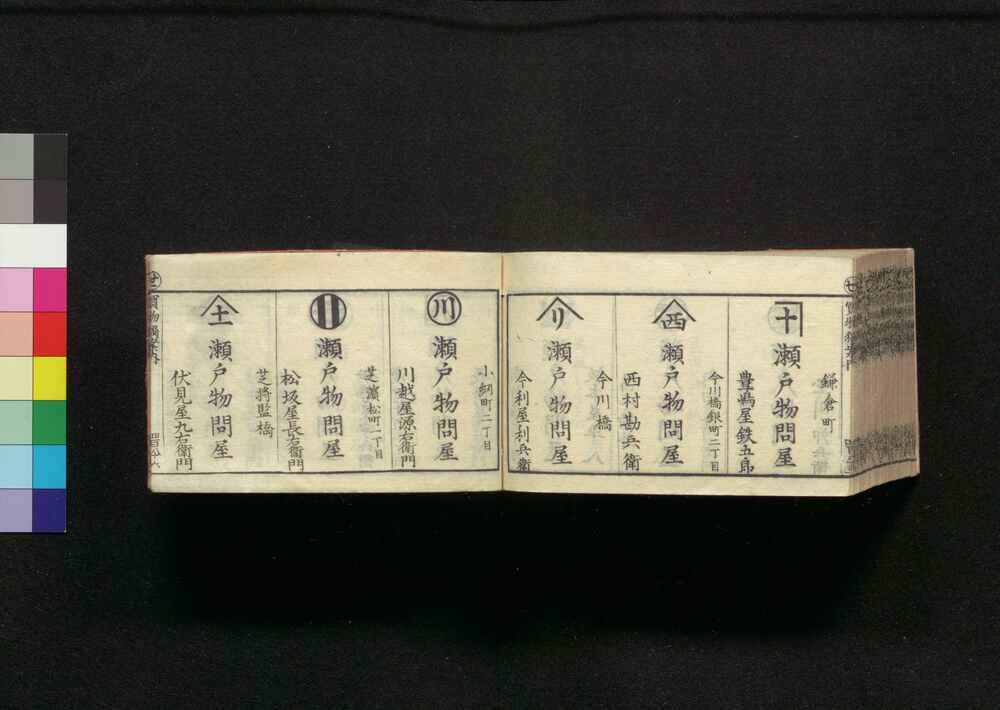 鎌倉町
十
瀬戸物問屋
豊嶋屋鉄五郎
今川橋銀町二丁目
西
瀬戸物問屋
西村勘兵衛
今川橋
リ
瀬戸物問屋
今利屋利兵衛
小網町二丁目
川
瀬戸物問屋
川越屋源右衛門
芝濱松町一丁目
瀬戸物問屋
松坂屋長右衛門
芝将監橋
土
瀬戸物問屋
伏見屋九右衛門